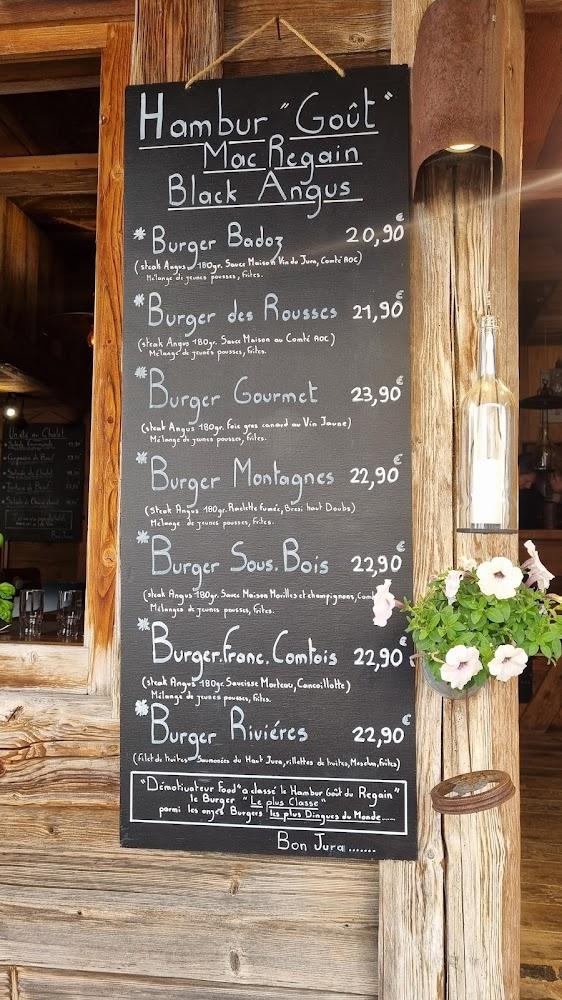 Hambur "Goût"
Mac Regain
Black Angus
*Burger Badoz 20,90€
(steak Angus 180gr. Sauce Maison Vin du Jura, Comté AOC)
Mélange de jeunes pousses, frites.
*Burger des Rousses 21,90€
(steak Angus 180gr. Sauce Maison au Comté AOC)
Mélange de jeunes pousses, frites.
*Burger Gourmet 23,90€
(steak Angus 180gr. Foie gras canard au Vin Jaune)
Mélange de jeunes pousses, frites.
*Burger Montagnes 22,90€
(steak Angus 180gr. Raclette fumée, Bresi haut Doubs)
Mélange de jeunes pousses, frites.
*Burger Sous.Bois 22,90€
(steak Angus 180gr. Sauce Maison Morilles et champignons,
Mélanges de jeunes pousses, frites.
*Burger.Franc.Comtois 22,90€
(steak Angus 180gr. Saucisse Morteau, Cancoillotte)
Mélange de jeunes pousses, frites.
*Burger Riviéres 22,90€
(filet de truites Saumonées du Haut Jura, rillettes de truites, Mesclun, frites)
"Démotivateur Food" a classé le Hambur Goût du Regain"
le Burger "Le plus Classe"
parmi les onze Burgers les plus Dingues du Monde.....
Bon Jura.......
Un été au Chalet
Bon Jura